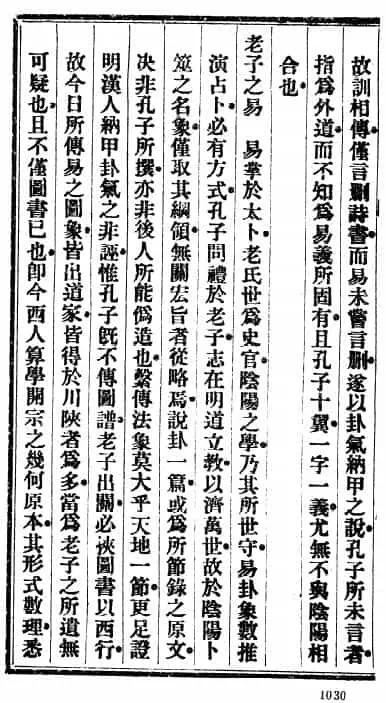 故訓相傳僅言刪詩書而易未嘗言刪遂以卦氣納甲之說孔子所未言者
指爲外道而不知爲易義所固有且孔子十翼一字一義尤無不與陰陽相
合也
老子之易　易掌於太卜老氏世爲史官陰陽之學乃其所世守易卦象數推
演占卜必有方式孔子問禮於老子志在明道立敎以濟萬世故於陰陽卜
筮之名象僅取其綱領無關宏旨者從略焉說卦一篇或爲所節錄之原文
決非孔子所撰亦非後人所能僞造也繫傳法象莫大乎天地一節更足證
明漢人納甲卦氣之非誣惟孔子旣不傳圖譜老子出關必挾圖書以西行
故今日所傳易之圖象皆出道家皆得於川陝者爲多當爲老子之所遺無
可疑也且不僅圖書已也卽今西人算學開宗之幾何原本其形式數理悉
1030